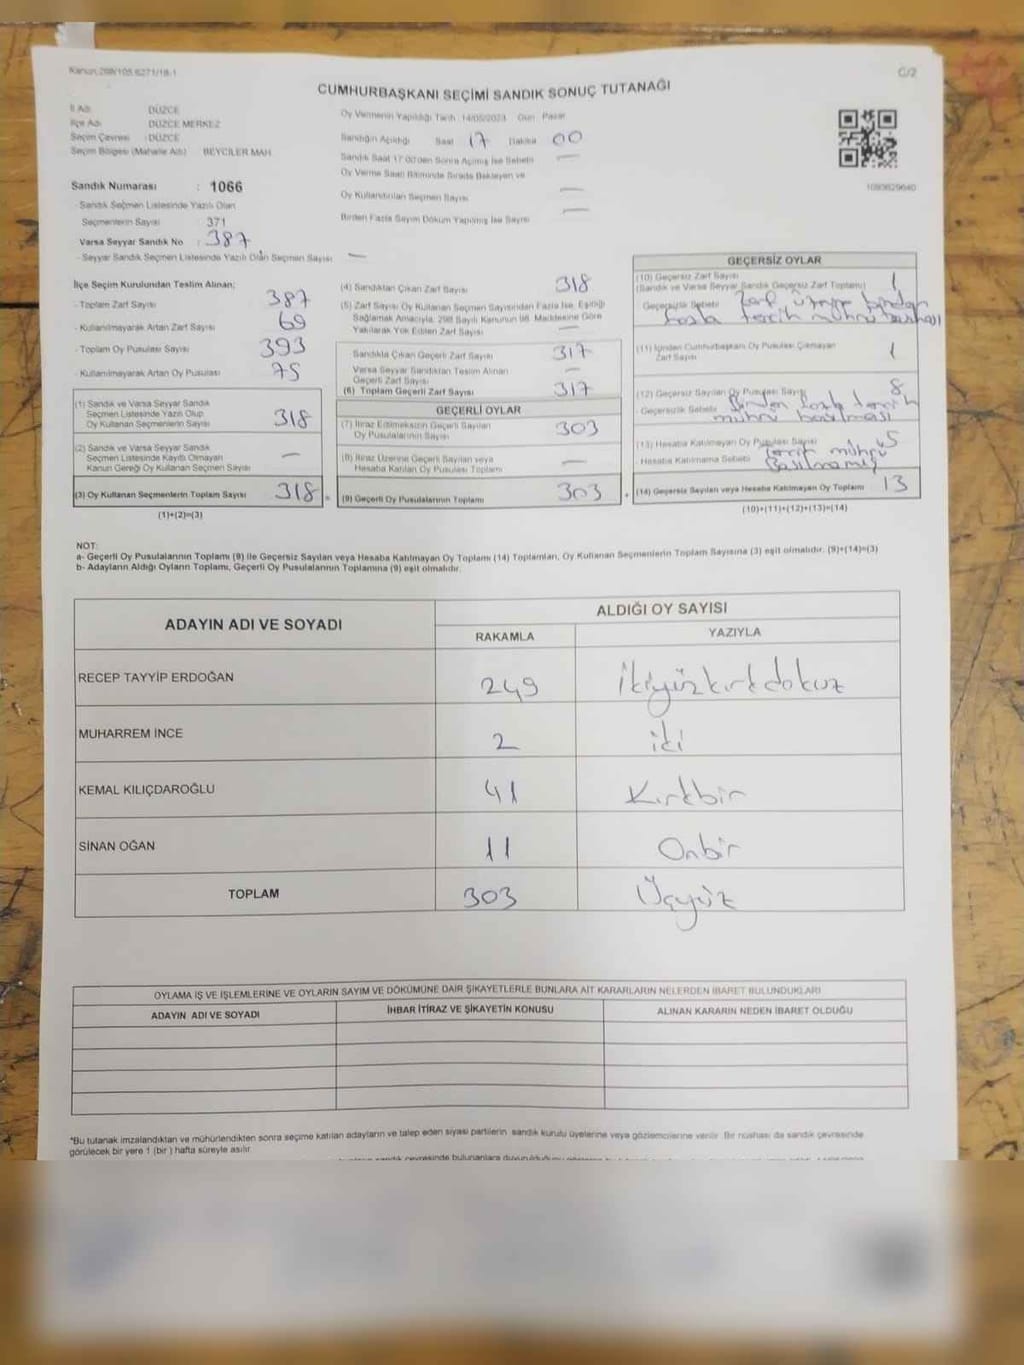 Kanun:298/105.6271/18-1
C/2
CUMHURBAŞKANI SEÇİMİ SANDIK SONUÇ TUTANAĞI
İl Adı : DÜZCE
İlçe Adı : DÜZCE MERKEZ
Seçim Çevresi : DÜZCE
Seçim Bölgesi (Mahalle Adı) : BEYCİLER MAH.
Sandık Numarası : 1066
- Sandık Seçmen Listesinde Yazılı Olan
Seçmenlerin Sayısı : 371
Varsa Seyyar Sandık No : 387
- Seyyar Sandık Seçmen Listesinde Yazılı Olan Seçmen Sayısı —
Oy Vermenin Yapıldığı Tarih: 14/05/2023 Gün: Pazar
Sandığın Açıldığı Saat 17 Dakika 00
Sandık Saat 17:00'den Sonra Açılmış İse Sebebi —
Oy Verme Saati Bitiminde Sırada Bekleyen ve
Oy Kullandırılan Seçmen Sayısı —
Birden Fazla Sayım Döküm Yapılmış İse Sayısı —
1080629640
İlçe Seçim Kurulundan Teslim Alınan;
- Toplam Zarf Sayısı 387
- Kullanılmayarak Artan Zarf Sayısı 69
- Toplam Oy Pusulası Sayısı 393
- Kullanılmayarak Artan Oy Pusulası 75
(1) Sandık ve Varsa Seyyar Sandık
Seçmen Listesinde Yazılı Olup
Oy Kullanan Seçmenlerin Sayısı 318
(2) Sandık ve Varsa Seyyar Sandık
Seçmen Listesinde Kayıtlı Olmayan
Kanun Gereği Oy Kullanan Seçmen Sayısı —
(3) Oy Kullanan Seçmenlerin Toplam Sayısı 318 =
(1)+(2)=(3)
(4) Sandıktan Çıkan Zarf Sayısı 318
(5) Zarf Sayısı Oy Kullanan Seçmen Sayısından Fazla İse, Eşitliği
Sağlamak Amacıyla, 298 Sayılı Kanunun 98. Maddesine Göre
Yakılarak Yok Edilen Zarf Sayısı —
Sandıkta Çıkan Geçerli Zarf Sayısı 317
Varsa Seyyar Sandıktan Teslim Alınan
Geçerli Zarf Sayısı —
(6) Toplam Geçerli Zarf Sayısı 317
GEÇERLİ OYLAR
(7) İtiraz Edilmeksizin Geçerli Sayılan
Oy Pusulalarının Sayısı 303
(8) İtiraz Üzerine Geçerli Sayılan veya
Hesaba Katılan Oy Pusulası Toplamı —
(9) Geçerli Oy Pusulalarının Toplamı 303 +
GEÇERSİZ OYLAR
(10) Geçersiz Zarf Sayısı
(Sandık ve Varsa Seyyar Sandık Geçersiz Zarf Toplamı) 1
Geçersizlik Sebebi : Zarf üzerine birden
fazla tercih mührü basılması
(11) İçinden Cumhurbaşkanı Oy Pusulası Çıkmayan
Zarf Sayısı 1
(12) Geçersiz Sayılan Oy Pusulası Sayısı 8
- Geçersizlik Sebebi : Birden fazla tercih
mührü basılması
(13) Hesaba Katılmayan Oy Pusulası Sayısı
- Hesaba Katılmama Sebebi : Tercih mührü
Basılmamış
(14) Geçersiz Sayılan veya Hesaba Katılmayan Oy Toplamı 13
(10)+(11)+(12)+(13)=(14)
NOT:
a- Geçerli Oy Pusulalarının Toplamı (9) ile Geçersiz Sayılan veya Hesaba Katılmayan Oy Toplamı (14) Toplamları, Oy Kullanan Seçmenlerin Toplam Sayısına (3) eşit olmalıdır. (9)+(14)=(3)
b- Adayların Aldığı Oyların Toplamı, Geçerli Oy Pusulalarının Toplamına (9) eşit olmalıdır.
ADAYIN ADI VE SOYADI
ALDIĞI OY SAYISI
RAKAMLA YAZIYLA
RECEP TAYYİP ERDOĞAN 249 İkiyüzkırkdokuz
MUHARREM İNCE 2 iki
KEMAL KILIÇDAROĞLU 41 Kırkbir
SİNAN OĞAN 11 Onbir
TOPLAM 303 Üçyüz
OYLAMA İŞ VE İŞLEMLERİNE VE OYLARIN SAYIM VE DÖKÜMÜNE DAİR ŞİKAYETLERLE BUNLARA AİT KARARLARIN NELERDEN İBARET BULUNDUKLARI
ADAYIN ADI VE SOYADI İHBAR İTİRAZ VE ŞİKAYETİN KONUSU ALINAN KARARIN NEDEN İBARET OLDUĞU
*Bu tutanak imzalandıktan ve mühürlendikten sonra seçime katılan adayların ve talep eden siyasi partilerin sandık kurulu üyelerine veya gözlemcilerine verilir. Bir nüshası da sandık çevresinde
görülecek bir yere 1 (bir) hafta süreyle asılır.